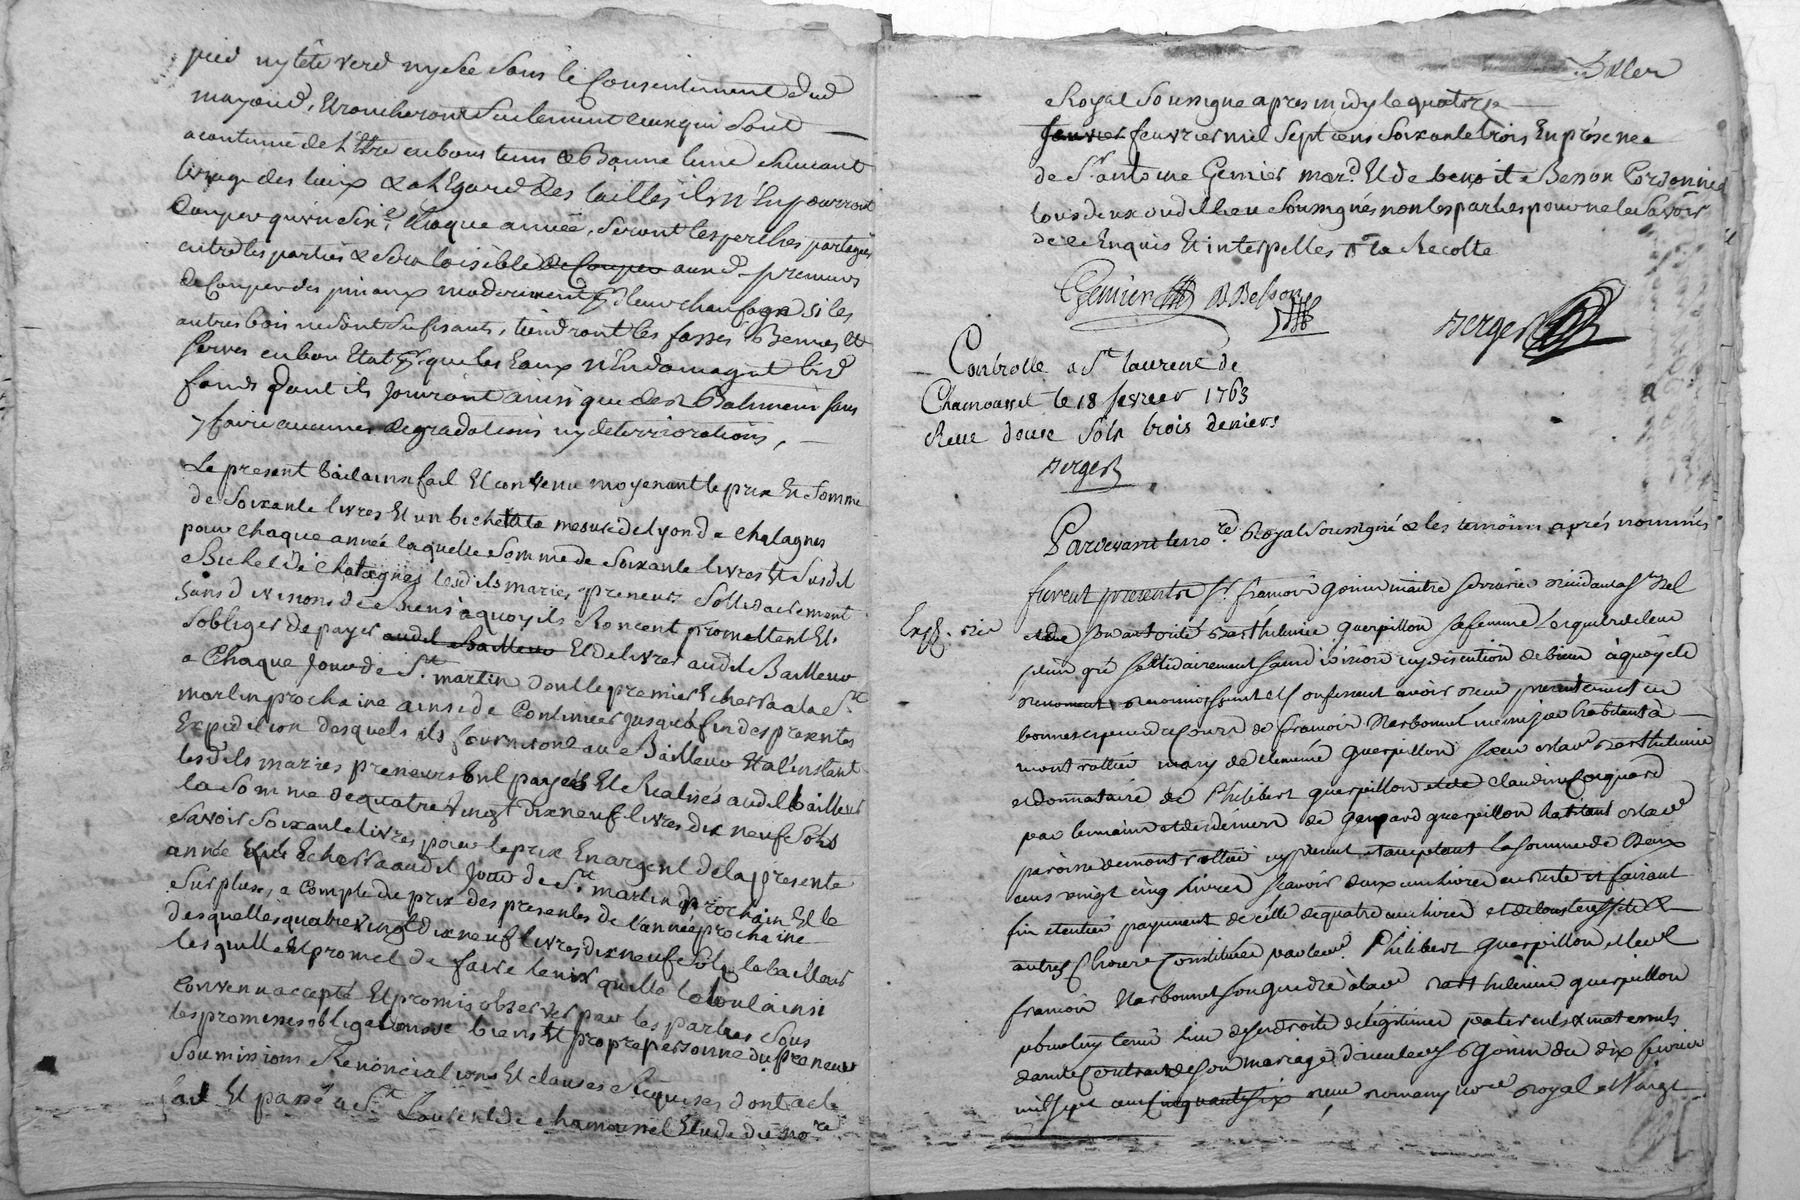 pied ny tête verd ny sec sans le Consentement dud
mayoud, Ebrancheront seulement ceux qui sont
acoutumé de l'Ettre en bons tems & Bonne lune suivant
lusage des lieux & a l'Egard des tailles ils n'En pourront
Couper qu'un six.e chaque année, seront les perches partagés
entre les parties & sera loisible de Couper auxd. preneurs
de Couper des pinaux modérément pr leur chaufage si les
autres bois ne sont sufisants, tiendront les fossés Bennes et
serves en bon Etat pr que les Eaux n'Endomagent lesd
fonds dont ils Jouiront ainsi que des Batiments sans
y faire aucunes degradations ny deteriorations,
Le present bail ainsi fait Et convenu moyenant le prix Et somme
de soixante livres Et un bichet a la mesure de lyon de chatagnes
pour chaque année laquelle somme de soixante livres Et susdit
Bichet de chatagnes lesdits mariés preneurs sollidairement
sans divisions de Biens a quoy ils Renoncent promettent Et
sobliger de payer audit Bailleur Et delivrer audit Bailleur
a Chaque Jour de St. martin dont le premier Echerra a la St
martin prochaine ainsi de Continuer jusqu'a fin des presentes
Expedition desquels ils fourniront au Bailleur Et a l'instant
lesdits mariés preneurs ont payés Et Realisés audit bailleur
la somme de quatre vingt dix neuf livres dix neuf sols
savoir soixante livres pour le prix En argent de la presente
année qui Echerra audit Jour de St. martin prochain Et le
surplus, a compte du prix des presentes de l'année prochaine
desquelles quatre vingt dix neuf livres dix neuf sols le bailleur
les quitte Et promet de faire tenir quitte le tout ainsi
convenu accepté Et promis observer par les parties sous
les promesses obligations de biens Et propre personne du preneur
soumissions Renonciations Et clauses Requises dont acte
fait Et passé a St Laurent de chamousset Etude du nore
Royal soussigne apres midy le quatorze
fevrier feuvrier mil sept cens soixante trois En présence
de Sr antoine Genier mard. Et de benoit Besson Cordonnier
tous deux dudit lieu soussignés non les parties pour ne le savoir
de ce Enquis Et interpellés a la Recolte
Genier B Besson
Berger
Controlle a St laurent de
Chamousset le 18 fevrier 1763
Receu douze sols trois deniers
Berger
Pardevant le nore. Royal soussigné & les temoins aprés nommés
furent presents Sr. françois Gonin maitre serrurier
Exp.
et de son autorité Barthelemie Guerpillon sa femme lesquels de leur
plein gré sollidairement sans division ny discution de bien à quoy ils
renoncent reconnoissent et confessent avoir receu presentement en
bonnes especes de cours de françois Narbonnet habitant à
montrottier mary de clemence Guerpillon soeur a lad Barthelemie
et donnataire de Philibert guerpillon et de Claudine
par les mains et des deniers de Gaspard guerpillon habitant en lad
paroisse de montrottier la somme de Deux
cens vingt cinq livres scavoir deux cens livres en reste et faisant
fin et entier payement de celle de quatre cens livres et de
autres Choses Constituée par led. Philibert guerpillon et led
françois Narbonnet son gendre à lad Barthelemie guerpillon
pour luy tenir lieu de ses droits de légitime paternels & maternels
dans le Contrat de son mariage d'avec led Sr Gonin du dix fevrier
mil sept cens cinquante six receu nore royal et vingt